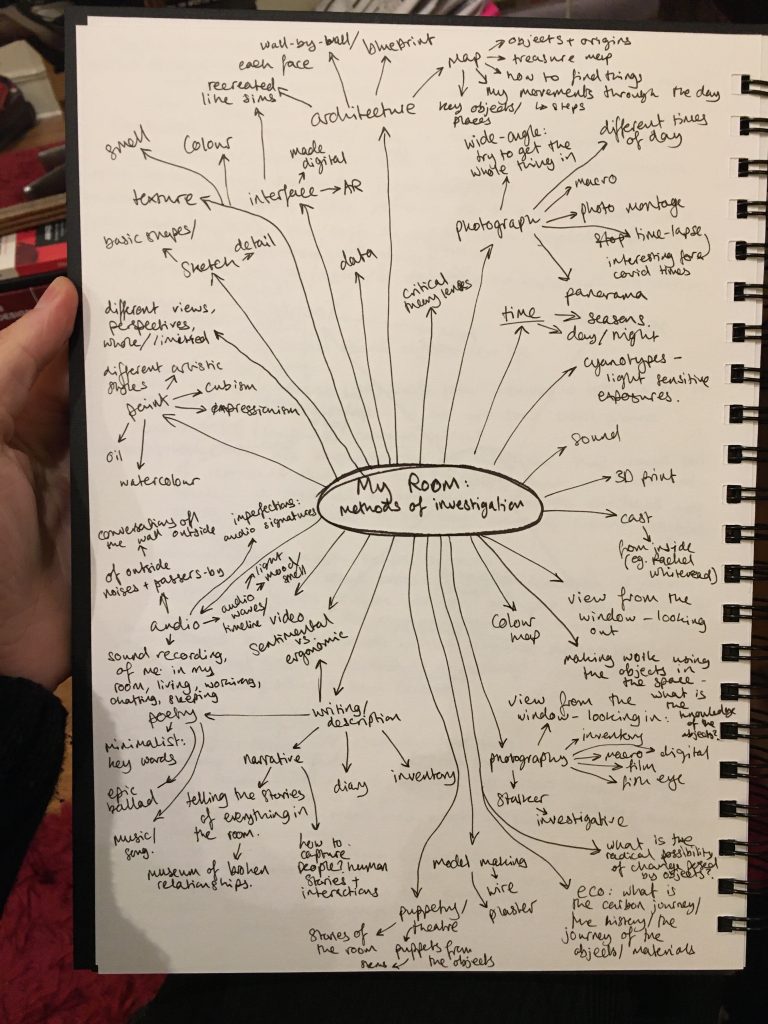 wall-by-wall/
each face
blueprint
map
objects + origins
treasure map
how to find things
my movements through the day
↳ steps
key objects/
places
recreated
like sims
architecture
smell
Colour
texture
made
digital
interface → AR
wide-angle:
try to get the
whole thing in
different times
of day
macro
photograph
photo montage
time-lapse,
interesting for a
covid times
panorama
basic shapes/
sketch
detail
data
critical
theory lenses
time
seasons.
day/night
different views,
perspectives,
whole/limited
cyanotypes -
light sensitive
exposures.
different artistic
styles
paint
cubism
expressionism
oil
watercolour
sound
3D print
cast
from inside
(eg. Rachel
Whiteread)
My Room:
methods of investigation
conversations of
the wall outside
imperfections:
audio signatures
of outside
noises + passers-by
light
mood/
smell
audio
audio
waves/
timeline
video
sentimental
vs.
ergonomic
colour
map
view from the
window - looking
out
making work using
the objects in
the space -
what is the
knowledge
of the
objects?
sound recording,
of me: in my
room, living, working,
chatting, sleeping
poetry
writing/
description
minimalist:
key words
epic
ballad
music/
song.
narrative
diary
inventory
telling the stories
of everything in
the room.
museum of broken
relationships.
how to
capture
people? human
stories +
interactions
view from the
window - looking in:
photography
inventory
macro
digital
film
fish eye
stalker
investigative
what is the
radical possibility
of change posed
by objects?
model making
wire
plaster
eco: what is
the carbon journey/
the history/the
journey of the
objects/materials
puppetry/
theatre
stories of
the room
puppets from
the objects